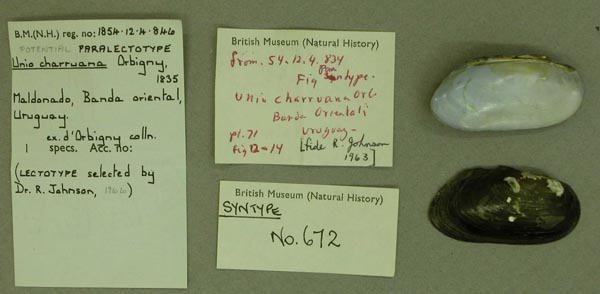 B.M.(N.H.) reg. no: 1854.12.4.846
POTENTIAL PARALECTOTYPE
Unio charruana Orbigny,
1835
Maldonado, Banda oriental,
Uruguay.
ex. d'Orbigny colln.
1 specs. Acc. no:
(LECTOTYPE selected by
Dr. R. Johnson, 1966)
British Museum (Natural History)
from. 54.12.4.834
Para
Fig Syntype.
Unio charruana Orb
Banda Orientali
pl. 71 Uruguay-
fig 12-14 (fide R. Johnson
1963)
British Museum (Natural History)
SYNTYPE
No. 672